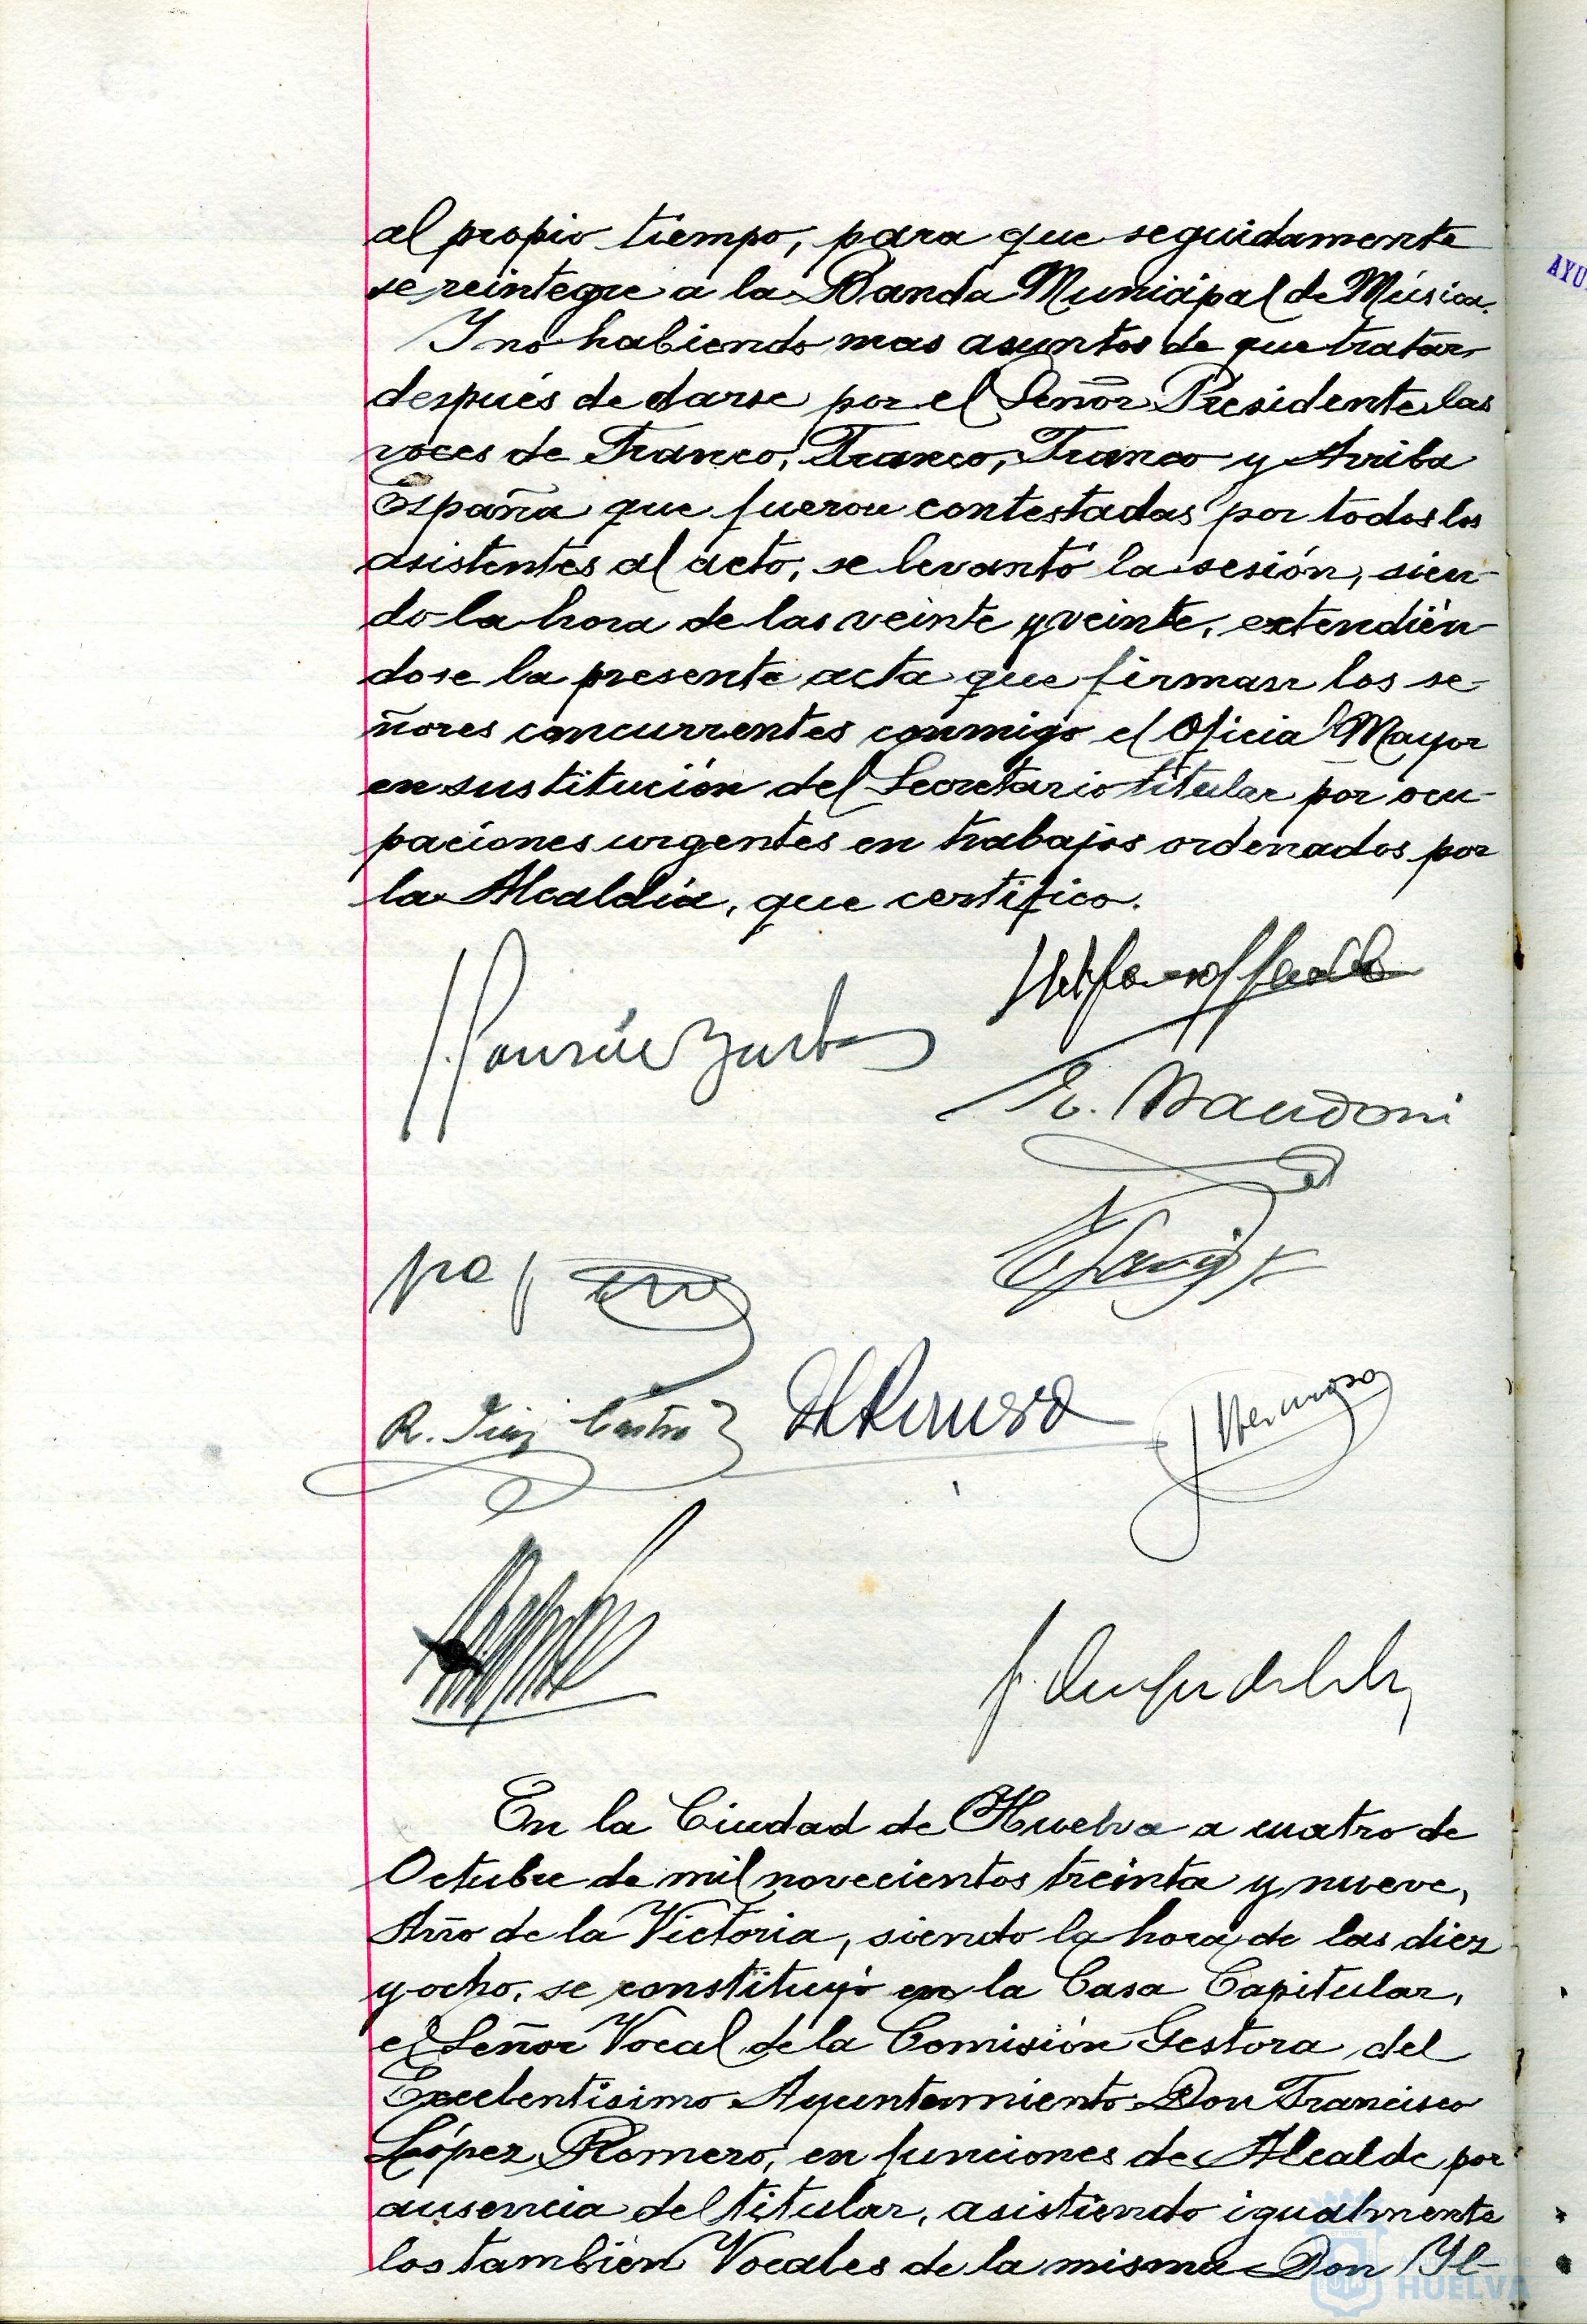 al propio tiempo, para que seguidamente
se reintegre a la Banda Municipal de Música.
Y no habiendo mas asuntos de que tratar
después de darse por el Señor Presidente las
voces de Franco, Franco, Franco y Arriba
España que fueron contestadas por todos los
asistentes al acto, se levantó la sesión, sien-
do la hora de las veinte y veinte, extendién-
dose la presente acta que firman los se-
ñores concurrentes conmigo el Oficial Mayor
en sustitución del Secretario titular por ocu-
paciones urgentes en trabajos ordenados por
la Alcaldía, que certifico.
R. Díaz Castro
J. Hermoso
En la Ciudad de Huelva a cuatro de
Octubre de mil novecientos treinta y nueve,
Año de la Victoria, siendo la hora de las diez
y ocho, se constituyó en la Casa Capitular,
el Señor Vocal de la Comisión Gestora del
Excelentísimo Ayuntamiento Don Francisco
López Romero, en funciones de Alcalde por
ausencia del titular, asistiendo igualmente
los también Vocales de la misma Don Il-
HUELVA